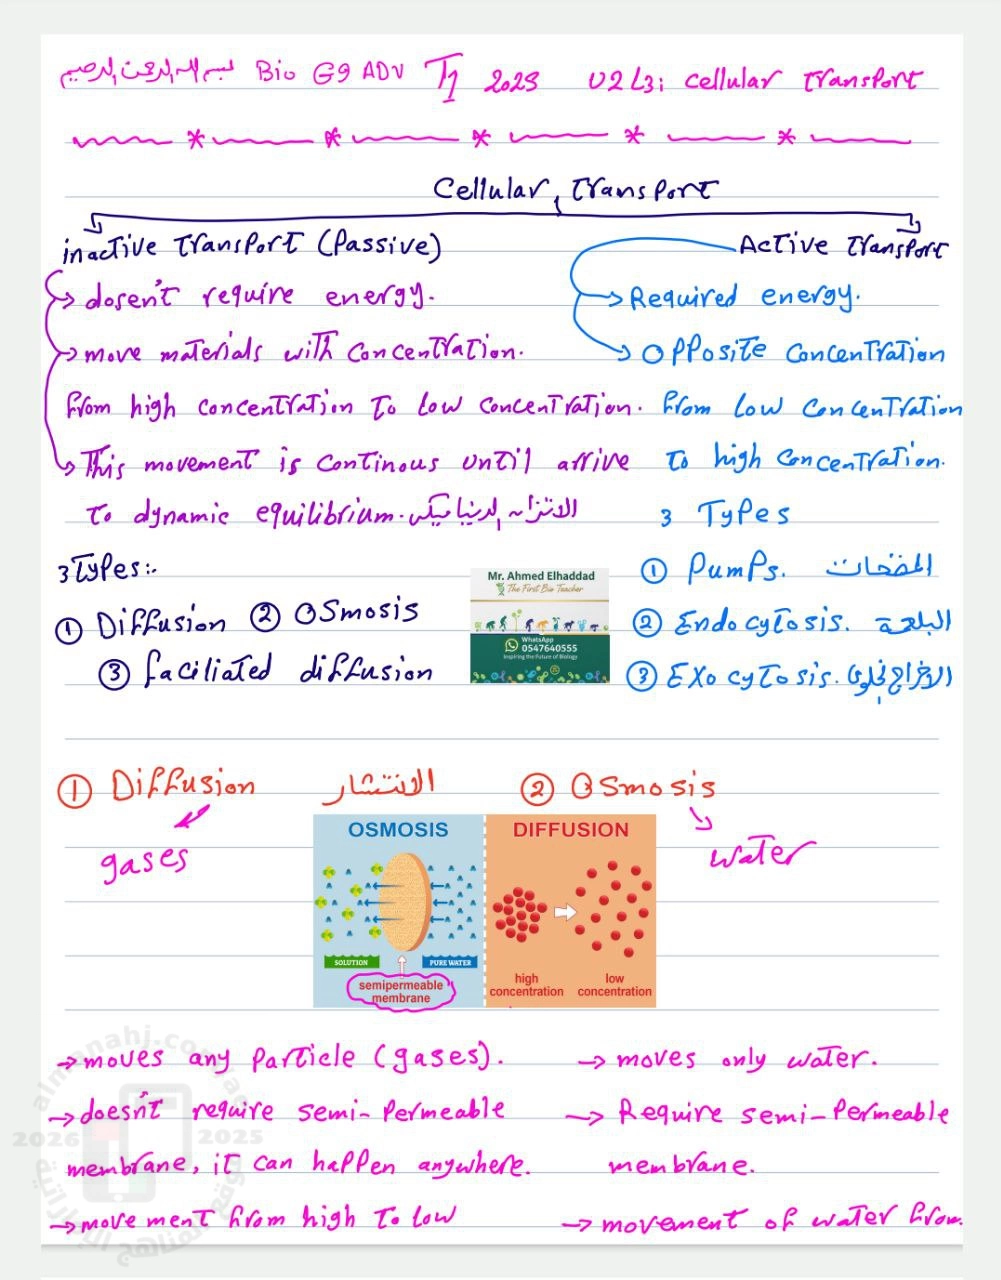 بسم الله الرحمن الرحيم Bio G9 ADV T1 2025 U2L3: Cellular Transport
Cellular Transport
inactive Transport (Passive)
Active Transport
→ dosen't require energy.
→ Required energy.
→ move materials with concentration.
→ Opposite concentration
from high concentration To low concentration.
from low concentration
→ This movement is continous until arrive
To high concentration.
To dynamic equilibrium. الاتزان الديناميكي
3 Types
3 Types:-
① Pumps. المضخات
① Diffusion ② Osmosis
② Endocytosis. البلعمة
③ faciliated diffusion
③ Exocytosis. الإخراج الخلوي
Mr. Ahmed Elhaddad
The First Bio Teacher
WhatsApp
0547640555
Inspiring the Future of Biology
① Diffusion الانتشار
② Osmosis
gases
water
OSMOSIS
DIFFUSION
SOLUTION
PURE WATER
semipermeable
membrane
high
concentration
low
concentration
→ moves any particle (gases).
→ moves only water.
→ doesn't require semi-permeable
→ Require semi-permeable
membrane, it can happen anywhere.
membrane.
→ movement from high To low
→ movement of water from
almanahj.com/ae
2026
2025
موقع المناهج الإماراتية